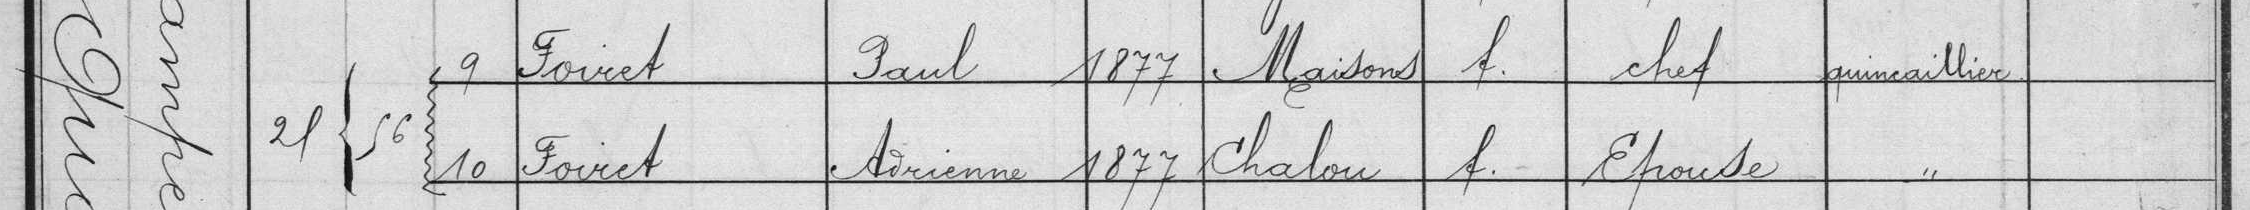 9 Foiret Paul 1877 Maisons f. chef quincaillier
21 56
10 Foiret Adrienne 1877 Chalou f. Epouse "